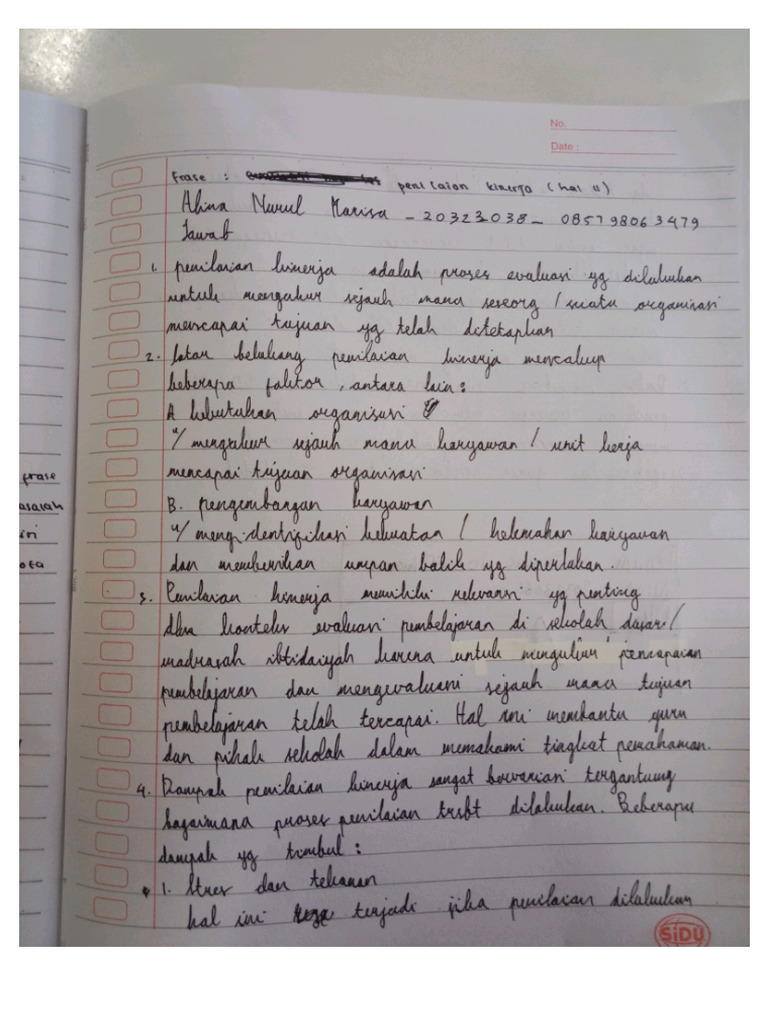 No.
Date :
Frase : penilaian kinerja (hal 11)
Alina Nurul Marisa - 20323038 - 085798063479
Jawab
1. penilaian kinerja adalah proses evaluasi yg dilakukan
untuk mengukur sejauh mana seseorg / suatu organisasi
mencapai tujuan yg telah ditetapkan
2. latar belakang penilaian kinerja mencakup
beberapa faktor, antara lain :
A kebutuhan organisasi
u/ mengukur sejauh mana karyawan / unit kerja
mencapai tujuan organisasi
B. pengembangan karyawan
u/ mengidentifikasi kekuatan / kelemahan karyawan
dan memberikan umpan balik yg diperlukan.
3. Penilaian kinerja memiliki relevansi yg penting
dlm konteks evaluasi pembelajaran di sekolah dasar /
madrasah ibtidaiyah karena untuk mengukur pencapaian
pembelajaran dan mengevaluasi sejauh mana tujuan
pembelajaran telah tercapai. Hal ini membantu guru
dan pihak sekolah dalam memahami tingkat pemahaman.
4. Dampak penilaian kinerja sangat bervariasi tergantung
bagaimana proses penilaian trsbt dilakukan. Beberapa
dampak yg timbul :
1. Stres dan tekanan
hal ini terjadi jika penilaian dilakukan
SiDU
frase
asalah
ini
ota